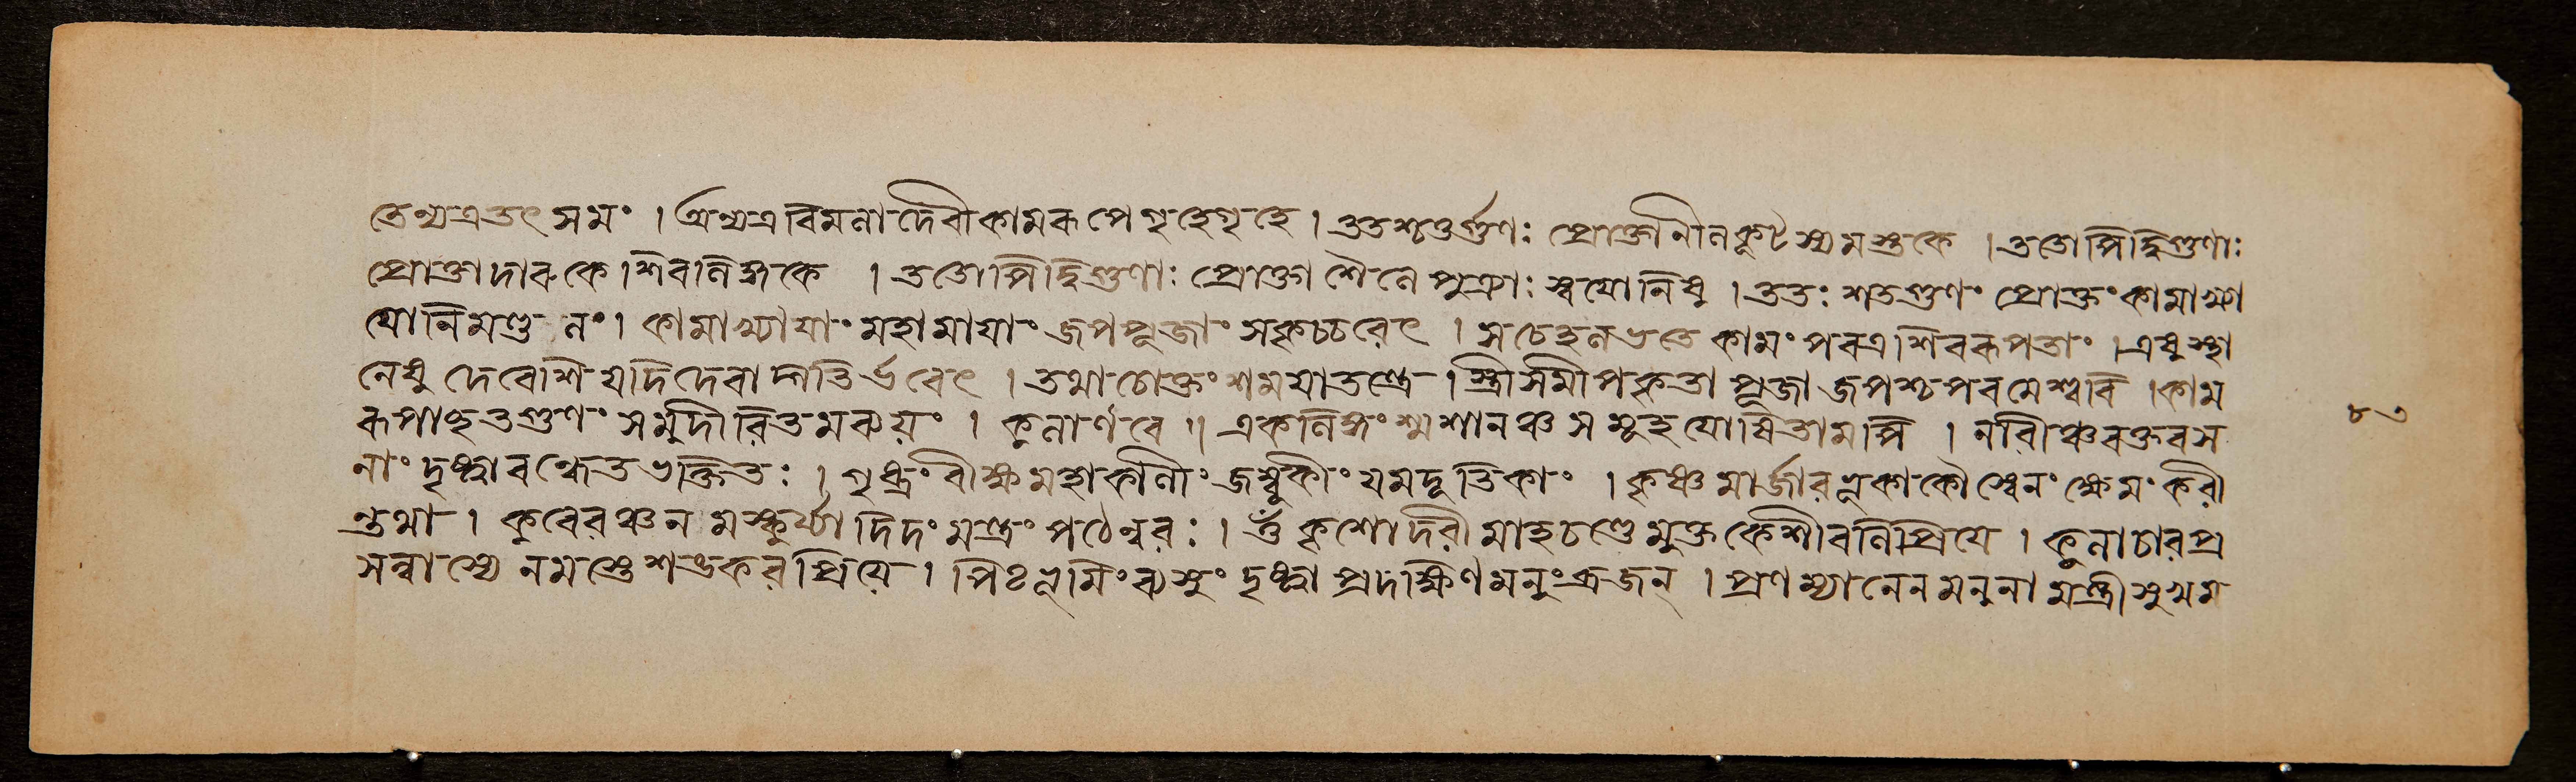 তেন্যত্রতৎ সমং । অন্যত্র বিমলাদেবীকামৰূপে গৃহেগৃহে । ততশ্চতুর্গুণঃ প্রোক্তানীলকূটস্যমস্তকে । ততোপিদ্বিগুণাঃ
প্রোক্তাদাৰুকে শিবলিঙ্গকে । ততোপিদ্বিগুণাঃ প্রোক্তা শৈলে পুত্র্যাঃ স্বযোনিষু । ততঃ শতগুণং প্রোক্তং কামাখ্যা
যোনিমণ্ডলং । কামাখ্যাযাং মহামাযাং জপপূজাং সকৃচ্চৰেৎ । সচেহলভতে কামং পৰত্রশিবৰূপতাং । এষুস্থা
নেষু দেবেশি যদিদেবাদ্গতির্ভবেৎ । তথা চোক্তং শমযাতন্ত্রে । স্ত্রীসমীপকৃতা পূজা জপশ্চপৰমেশ্বৰি । কাম
ৰূপাচ্ছতগুণং সমুদীৰিতমব্যয়ং । কুলার্ণবে ॥ একলিঙ্গংশ্মশানঞ্চ সমূহযোষিতামপি । নৰীঞ্চৰক্তবস
নাং দৃষ্ট্বাবন্দেতভক্তিতঃ । গৃধ্রং বীক্ষ্যমহাকালীং জম্বুকীং যমদূতিকাং । কৃষ্ণমার্জাৰলূকাকৌশ্যেনং ক্ষেমংকৰী
ন্তথা । কুৰেৰঞ্চনমস্কুর্য্যাদিদং মন্ত্রং পঠেন্নৰঃ । ওঁ কৃশোদৰী মাহচণ্ডে মুক্তকেশীবলিপ্রিযে । কুলাচাৰপ্র
সন্নাস্যে নমস্তেশঙ্কৰপ্রিযে । দৃষ্ট্বা প্রদক্ষিণমনুংব্রজন্ । প্রণম্যানেনমনুনা মন্ত্রীসুখম
৮৩